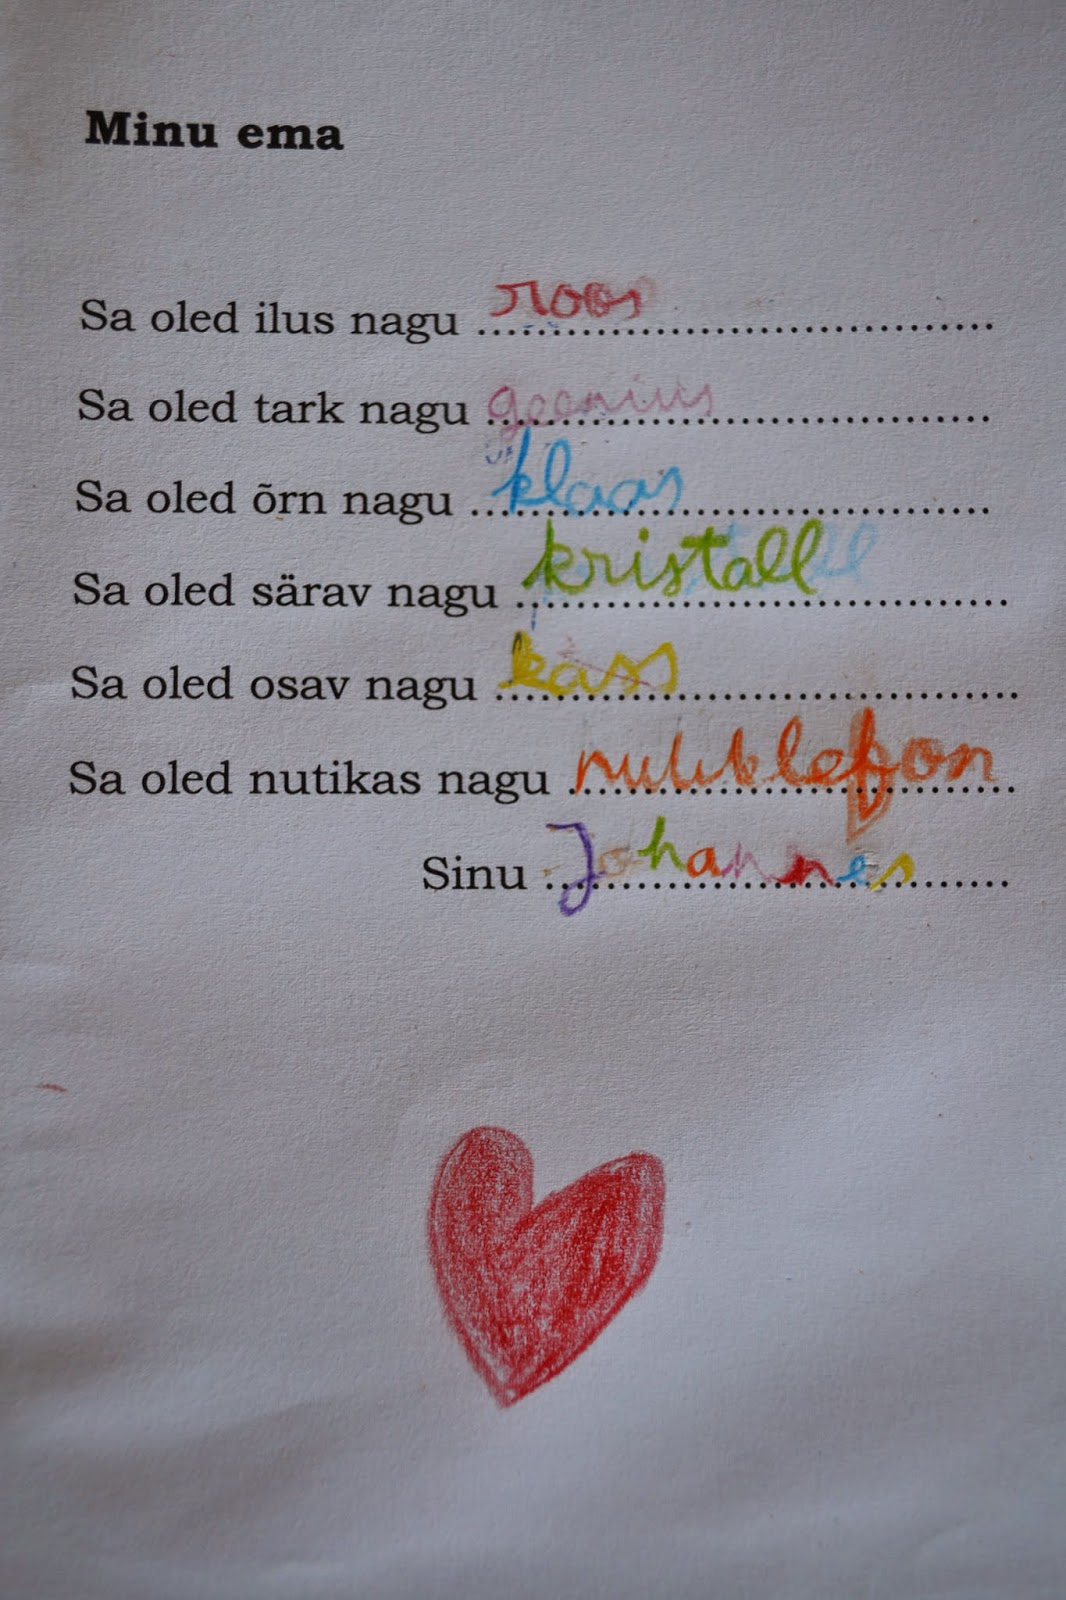 Minu ema
Sa oled ilus nagu roos
Sa oled tark nagu geenius
Sa oled õrn nagu klaas
Sa oled särav nagu kristall
Sa oled osav nagu kass
Sa oled nutikas nagu
Sinu Johannes